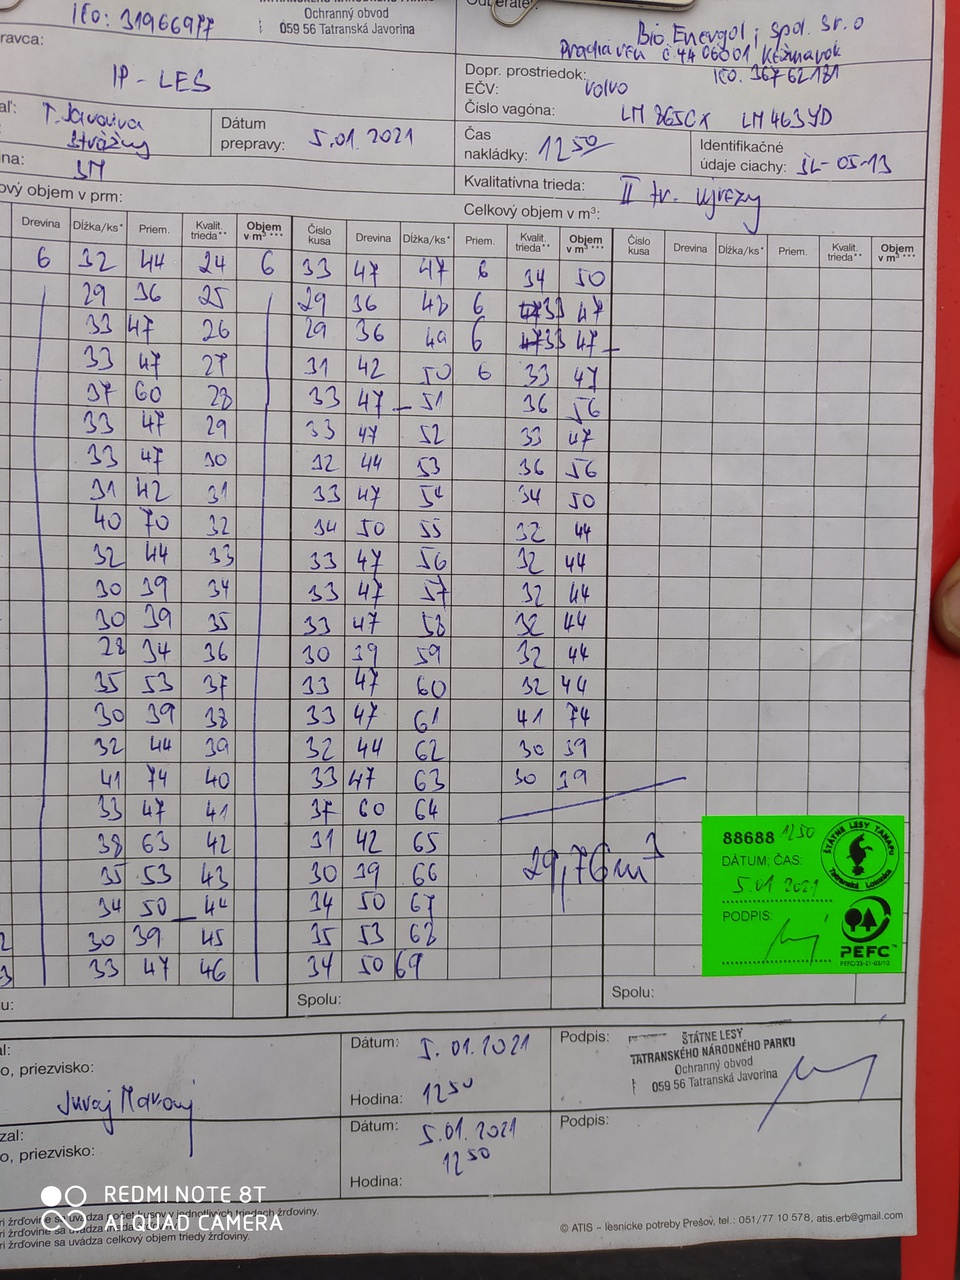 IČO: 31966977
TATRANSKÉHO NÁRODNÉHO PARKU
Ochranný obvod
059 56 Tatranská Javorina
Odberateľ:
Bio Energol, spol. sr.o
Pradiareň č.44 06001 Kežmarok
IČO. 36762181
ravca:
IP - LES
Dopr. prostriedok: Volvo
EČV:
Číslo vagóna: LM 865CX LM 463YD
aľ: T. Javorina
Strážny
Dátum
prepravy: 5.01.2021
Čas
nakládky: 12 50
Identifikačné
údaje ciachy: SL-05-13
ina: SM
Kvalitatívna trieda: II tr. výrezy
ový objem v prm:
Celkový objem v m³:
Drevina Dĺžka/ks* Priem. Kvalit. trieda** Objem v m³*** Číslo kusa Drevina Dĺžka/ks* Priem. Kvalit. trieda** Objem v m³*** Číslo kusa Drevina Dĺžka/ks* Priem. Kvalit. trieda** Objem v m³***
6 32 44 24 6 33 47 47 6 34 50
29 36 25 29 36 48 6 33 47
33 47 26 29 36 49 6 33 47
33 47 27 31 42 50 6 33 47
37 60 28 33 47 51 36 56
33 47 29 33 47 52 33 47
33 47 30 32 44 53 36 56
31 42 31 33 47 54 34 50
40 70 32 34 50 55 32 44
32 44 33 33 47 56 32 44
30 39 34 33 47 57 32 44
30 39 35 33 47 58 32 44
28 34 36 30 39 59 32 44
35 53 37 33 47 60 32 44
30 39 38 33 47 61 41 74
32 44 39 32 44 62 30 39
41 74 40 33 47 63 30 39
33 47 41 37 60 64
38 63 42 31 42 65
35 53 43 30 39 66
34 50 44 34 50 67
2 30 39 45 35 53 68
3 33 47 46 34 50 69
29,76m³
88688 1250
DÁTUM; ČAS:
5.01 2021
PODPIS:
ŠTÁTNE LESY TANAPu
Tatranská Lomnica
PEFC™
PEFC/35-21-03/10
u:
Spolu:
Spolu:
al:
o, priezvisko:
Juraj
Dátum: 5.01.2021
Hodina: 12 50
Podpis:
ŠTÁTNE LESY
TATRANSKÉHO NÁRODNÉHO PARKU
Ochranný obvod
059 56 Tatranská Javorina
zal:
o, priezvisko:
Dátum: 5.01.2021
12 50
Hodina:
Podpis:
REDMI NOTE 8T
AI QUAD CAMERA
ri žrďovine sa uvádza počet kusov v jednotlivých triedach žrďoviny.
ri žrďovine sa uvádza trieda
ri žrďovine sa uvádza celkový objem triedy žrďoviny.
© ATIS – lesnícke potreby Prešov, tel.: 051/77 10 578, atis.erb@gmail.com